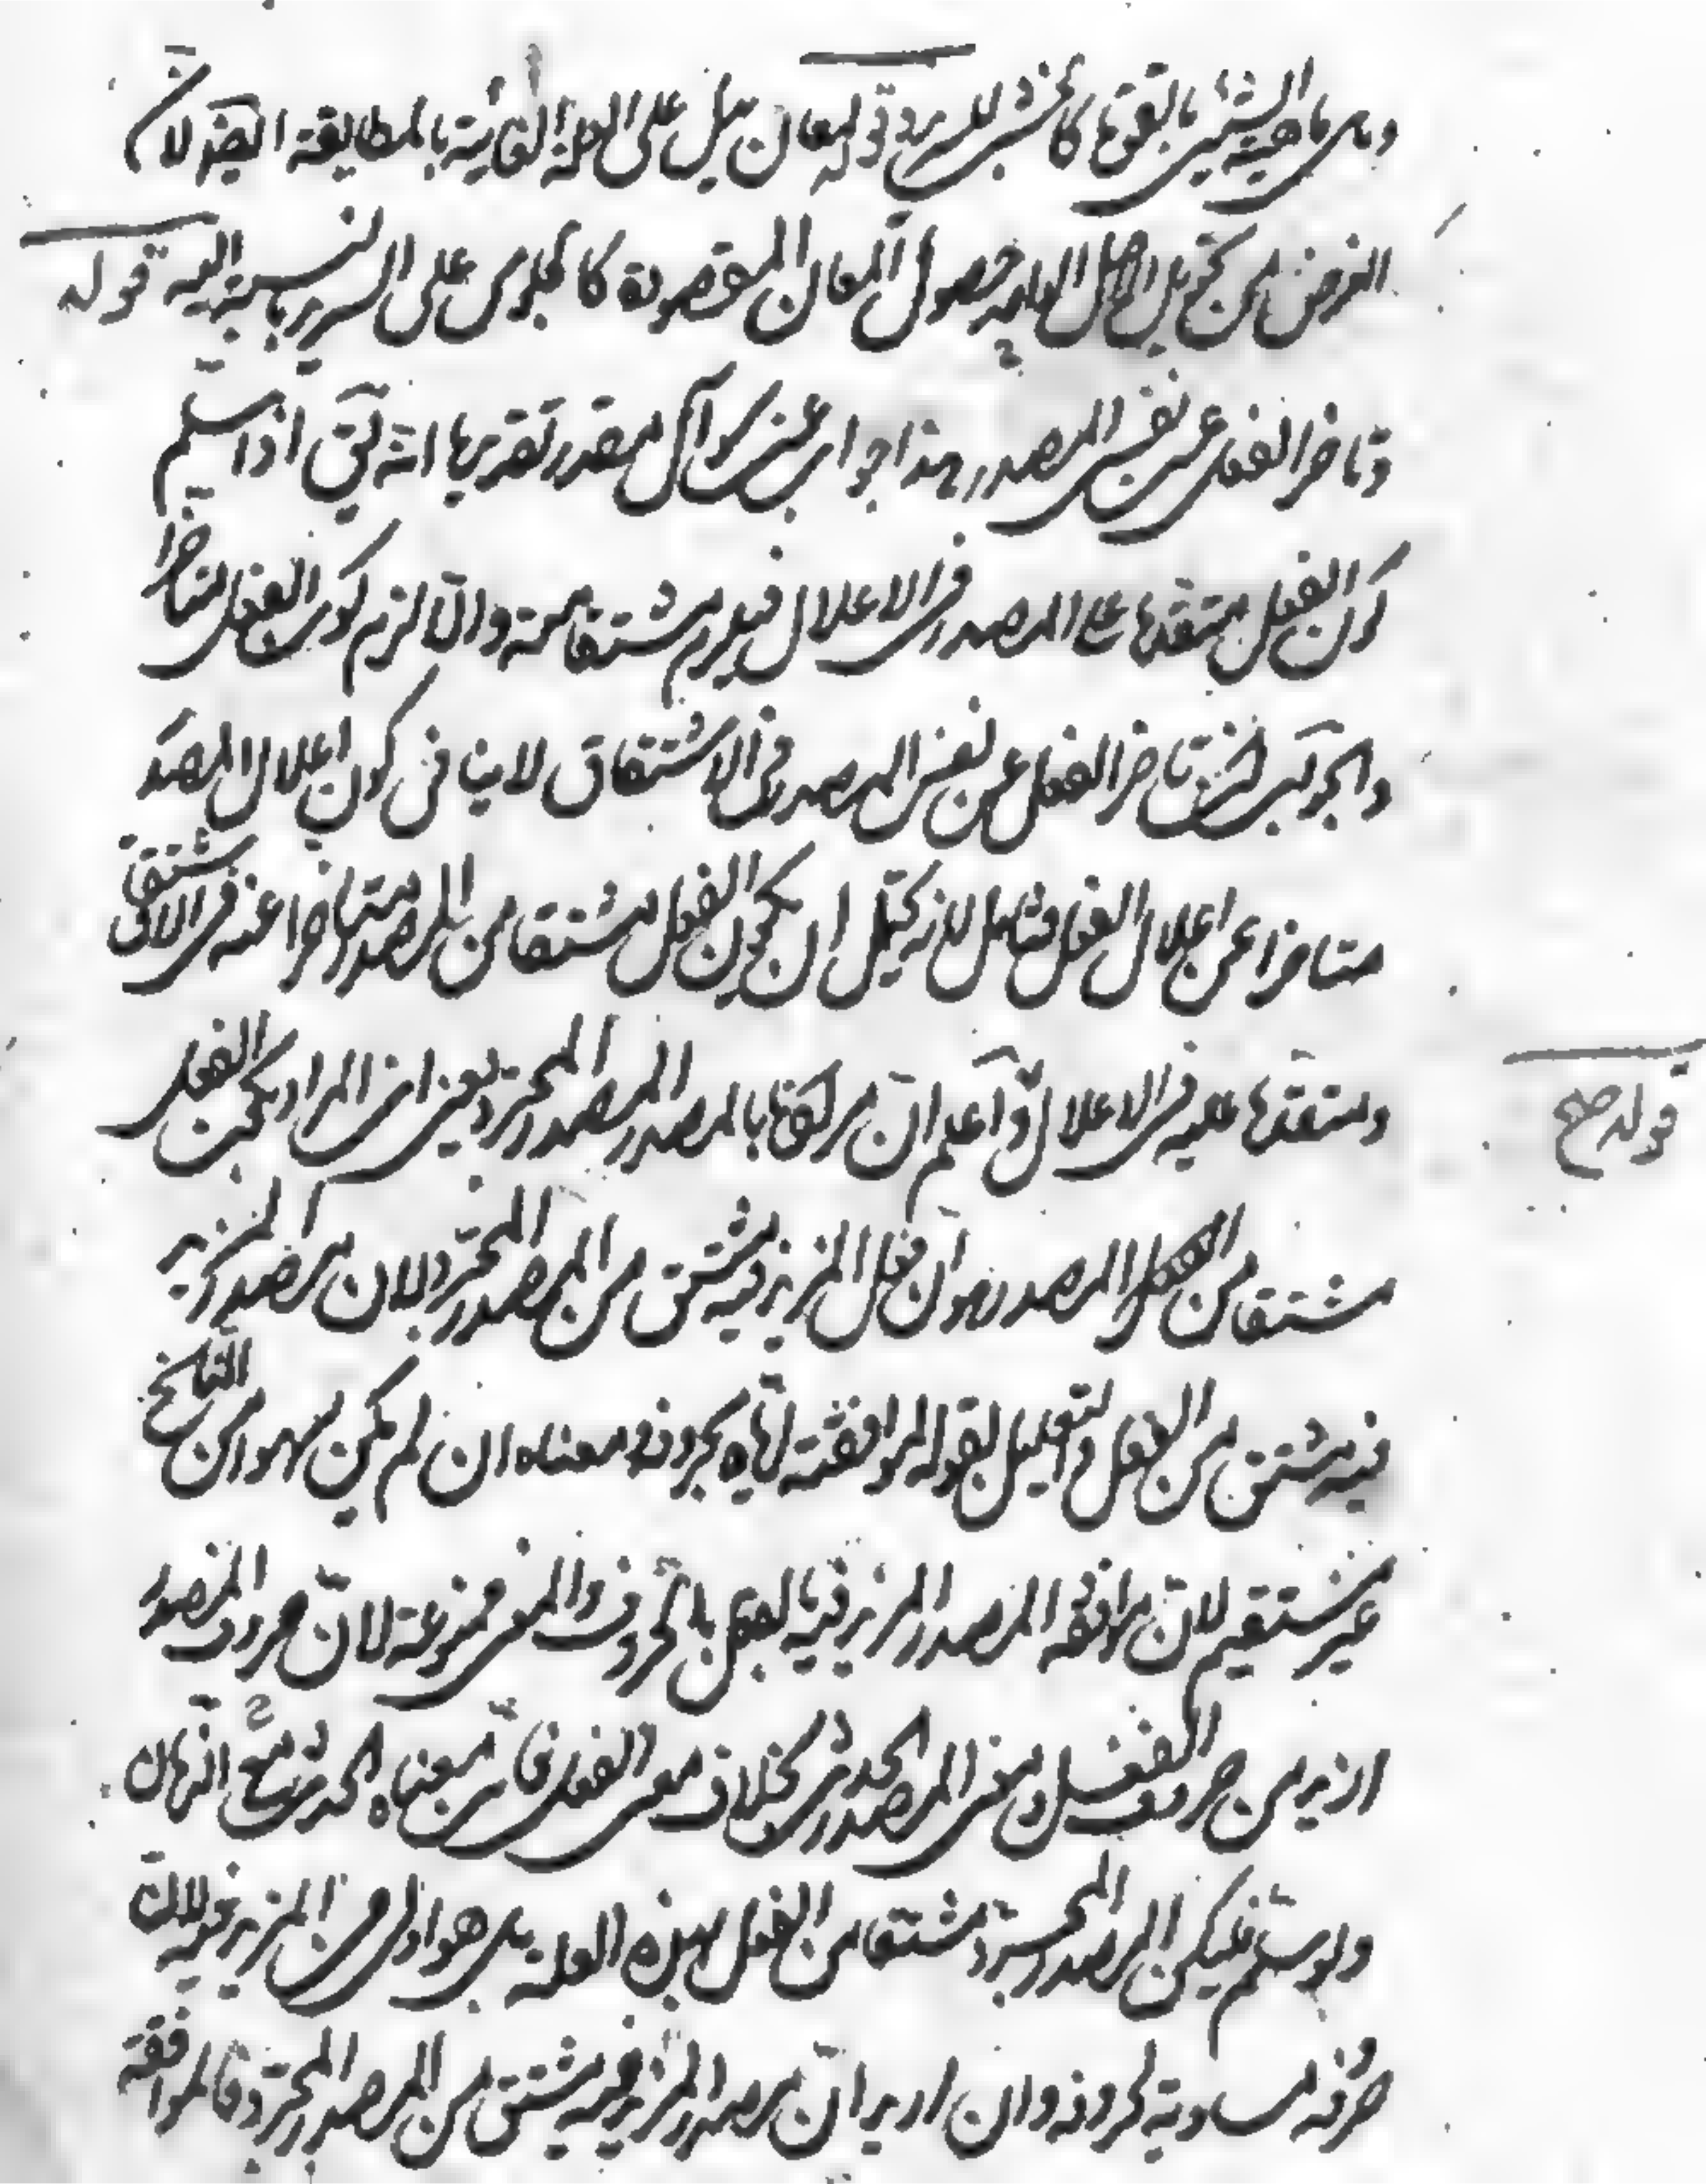 وهى ما هية الشئ بالقوة كالخشب للسرير قوله لمعان يدل على العلة الغائية بالمطابقة ايضا لان
الغرض من تحويل الاصل الواحد حصول المعان المقصودة كالجلوس على السرير بالنسبة اليه قوله
وتاخر الفعل عن نفس المصدر هذا جواب عن سوال مقدر تقديرها انه لقى اذا سلم
كون الفعل متقدما على المصدر فى الاعلال فيلزم مشتقا منه والا لزم كون الفعل متاخرا
والجواب ان تاخر الفعل عن نفس المصدر فى الاشتقاق لا ينافى كون اعلال المصدر
متاخرا عن اعلال الفعل فتامل لانه يحتمل ان يكون الفعل مشتقا من المصدر متاخرا عنه فى الاشتقاق
ومتقدما عليه فى الاعلال واعلم ان مرادنا بالمصدر المصدر المجرد يعنى ان المراد بحث الفعل
مشتقا من الفعل المصدر هو ان فعل المزيد فيه مشتق من المصدر المجرد لان مصدر المزيد
فيه مشتق من الفعل والتعليل بقوله لموافقته اياه بحروفه ومعناه ان لم يكن سهوا من الناسخ
غير مستقيم لان موافقة المصدر المزيد فيه الفعل بالحروف والمعنى ممنوعة لان حروف المصدر
ازيد من حروف الفعل ومعنى المصدر الحدث بخلاف معنى الفعل فان معناه الحدث مع الزمان
ولو سلم فليكن المصدر المجرد مشتقا من الفعل بهذه العلة بل هو اولى من المزيد فيه لان
حروفه مساوية لحروفه وان اريد ان مصدر المزيد فيه مشتق من المصدر المجرد فالموافقة
قوله صح